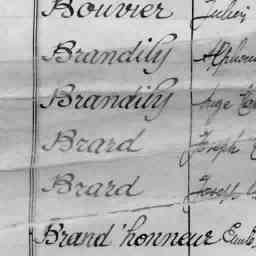 Bouvier Julien
Brandily Alphon
Brandily Ange
Brard Joseph
Brard Joseph
Brand'honneur Emile